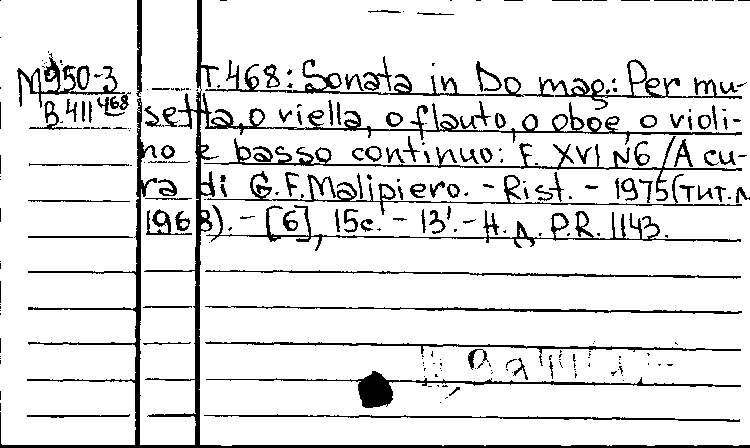 М950-3
В.411 468
T.468: Sonata in Do mag.: Per mu-
setta, o viella, o flauto, o oboe, o violi-
no e basso continuo: F. XVI N6 / A cu-
ra di G.F. Malipiero. - Rist. - 1975 (тит.л.
1968). - [6], 15c. - 13'. - Н. д. P.R. 1143.